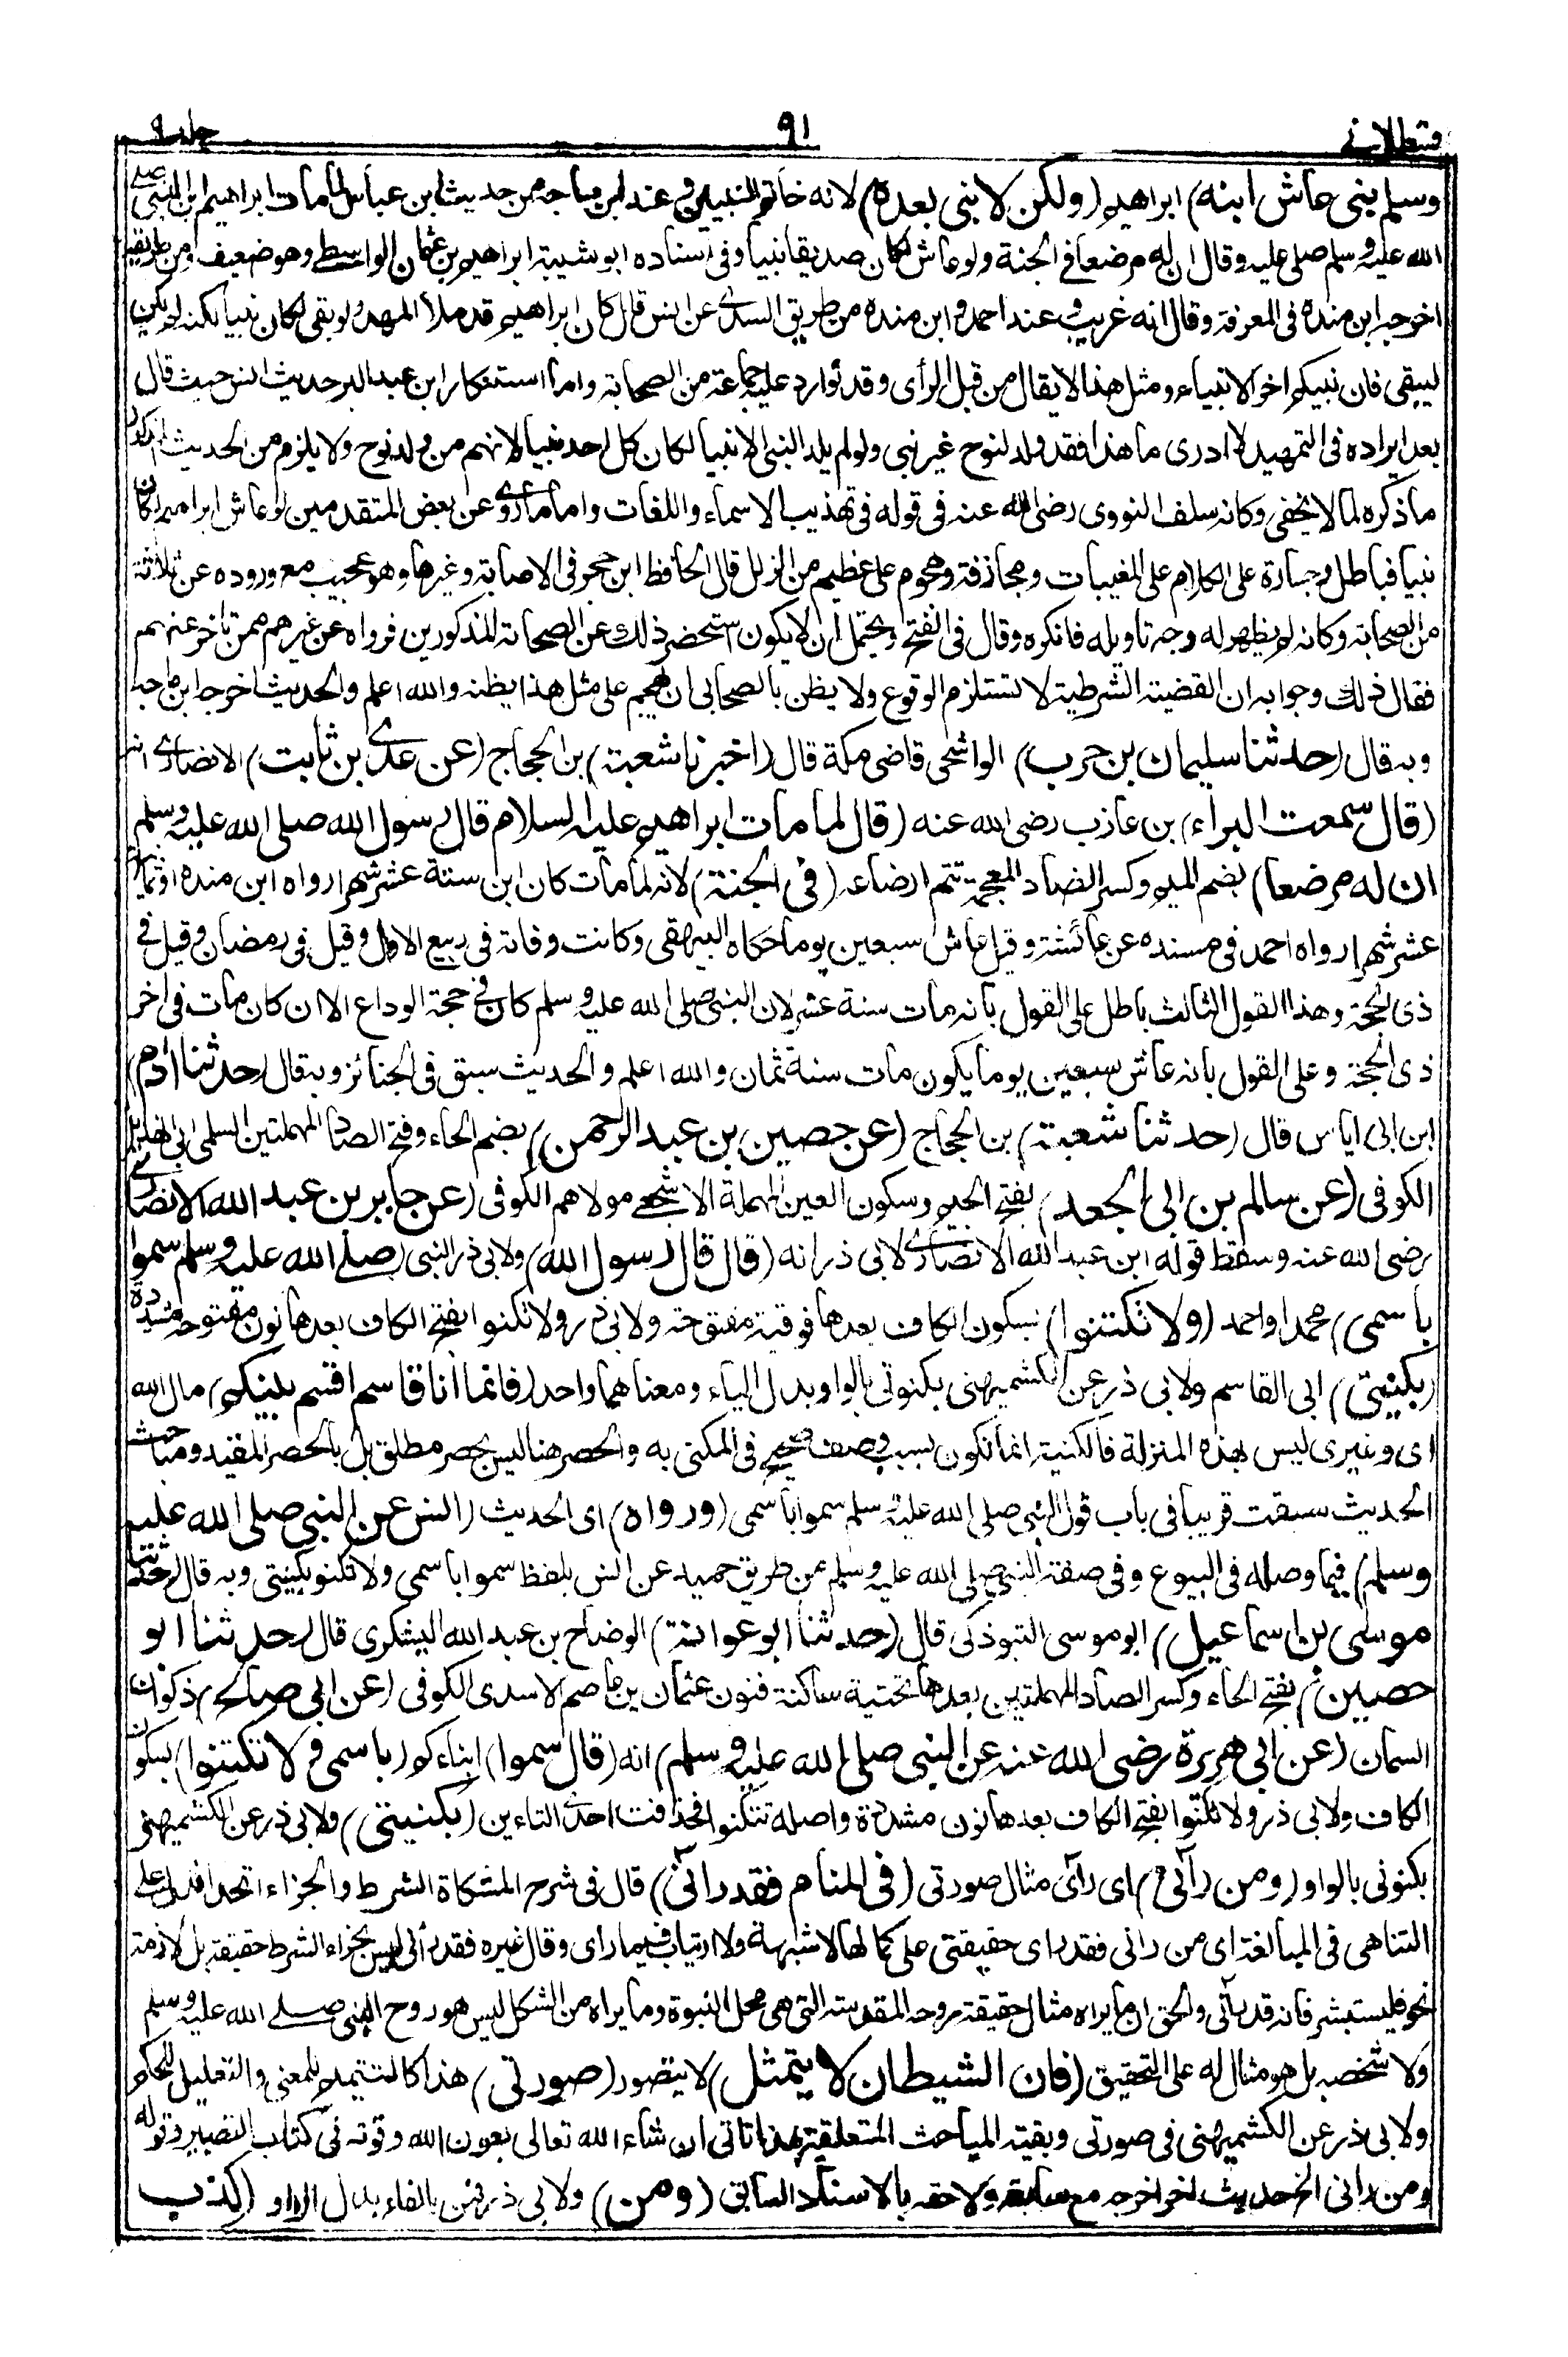 قسطلانے
٩١
جلد ٩
وسلم نبی عاش ابنه) ابراهيم (ولكن لا نبی بعده) لانه خاتم النبيين وعند ابن ماجه من حديث ابن عباس لما مات ابراهيم ابن النبی صلى
الله عليه وسلم صلى عليه وقال ان له مرضعا فی الجنة ولو عاش لكان صديقا نبيا وفی اسناده ابو شيبة ابراهيم بن عثمان الواسطے وهو ضعيف ومن طريقه
اخرجه ابن منده فی المعرفة وقال انه غريب وعند احمد وابن منده من طريق السدے عن انس قال كان ابراهيم قد ملأ المهد ولو بقی لكان نبيا لكنه لم يكن
ليبقی فان نبيكم اخر الانبياء ومثل هذا لا يقال من قبل الرأی وقد توارد عليه جماعة من الصحابة واما استنكار ابن عبد البر حديث انس حيث قال
بعد ايراده فی التمهيد لا ادری ما هذا فقد ولد لنوح غير نبی ولو لم يلد النبی الا نبيا لكان كل احد نبيا لانهم من ولد نوح ولا يلزم من الحديث المذكور
ما ذكره لما لا يخفی وكانه سلف النووی رضی الله عنه فی قوله فی تهذيب الاسماء واللغات واما ما روے عن بعض المتقدمين لو عاش ابراهيم لكان
نبيا فباطل وجسارة على الكلام على المغيبات ومجازفة وهجوم على عظيم من الزلل قال الحافظ ابن حجر فی الاصابة وغيرها وهو عجيب مع وروده عن ثلاثة
من الصحابة وكانه لم يظهر له وجه تاويله فانكره وقال فی الفتح ويحتمل ان لا يكون استحضر ذلك عن الصحابة المذكورين فرواه عن غيرهم ممن تاخر عنهم
فقال ذلك وجوابه ان القضية الشرطية لا تستلزم الوقوع ولا يظن بالصحابی ان يهجم على مثل هذا بظنه والله اعلم والحديث اخرجه ابن ماجه
وبه قال (حدثنا سليمان بن حرب) الواشحی قاضی مكة قال (اخبرنا شعبة) بن الحجاج (عن عدے بن ثابت) الانصارے انه
(قال سمعت البراء) بن عازب رضی الله عنه (قال لما مات ابراهيم عليه السلام قال رسول الله صلى الله عليه وسلم
ان له مرضعا) بضم الميم وكسر الضاد المعجمة تتم ارضاعه (فی الجنة) لانه لما مات كان ابن ستة عشر شهرا رواه ابن منده او ثمانية
عشر شهرا رواه احمد فی مسنده عن عائشة وقيل عاش سبعين يوما حكاه البيهقی وكانت وفاته فی ربيع الاول وقيل فی رمضان وقيل فے
ذی الحجة وهذا القول الثالث باطل على القول بانه مات سنة عشر لان النبی صلى الله عليه وسلم كان فے حجة الوداع الا ان كان مات فی اخر
ذی الحجة وعلى القول بانه عاش سبعين يوما يكون مات سنة ثمان والله اعلم والحديث سبق فی الجنائز وبه قال (حدثنا ادم)
ابن ابی اياس قال (حدثنا شعبة) بن الحجاج (عن حصين بن عبد الرحمن) بضم الحاء وفتح الصاد المهملتين السلمی ابی الهذيل
الكوفی (عن سالم بن ابی الجعد) بفتح الجيم وسكون العين المهملة الاشجعے مولاهم الكوفی (عن جابر بن عبد الله الانصارے
رضی الله عنه وسقط قوله ابن عبد الله الانصارے لابی ذر انه (قال قال رسول الله) ولابی ذر النبی (صلے الله عليه وسلم سموا
باسمی) محمدا واحمد (ولا تكتنوا) بسكون الكاف بعدها فوقية مفتوحة ولابی ذر ولا تكنوا بفتح الكاف بعدها نون مفتوحة مشددة
(بكنيتی) ابی القاسم ولابی ذر عن الكشميهنی بكنوتی بالواو بدل الياء ومعناهما واحد (فانما انا قاسم اقسم بينكم) مال الله
ای وغيری ليس بهذه المنزلة فالكنية انما تكون بسبب وصف صحيح فی المكنی به والحصر هنا ليس بحصر مطلق بل بالحصر المقيد ومباحث
الحديث سبقت قريبا فی باب قول النبی صلى الله عليه وسلم سموا باسمی (ورواه) ای الحديث (انس عن النبی صلى الله عليه
وسلم) فيما وصله فی البيوع وفی صفة النبی صلى الله عليه وسلم من طريق حميد عن انس بلفظ سموا باسمی ولا تكنوا بكنيتی وبه قال (حدثنا
موسی بن اسماعيل) ابو موسی التبوذكی قال (حدثنا ابو عوانة) الوضاح بن عبد الله اليشكری قال (حدثنا ابو
حصين) بفتح الحاء وكسر الصاد المهملتين بعدها تحتية ساكنة فنون عثمان بن عاصم الاسدی الكوفی (عن ابی صالح) ذكوان
السمان (عن ابی هريرة رضی الله عنه عن النبی صلى الله عليه وسلم) انه (قال سموا) ابناءكم (باسمی ولا تكتنوا) بسكون
الكاف ولابی ذر ولا تكنوا بفتح الكاف بعدها نون مشددة واصله تتكنوا فحذفت احدے التاءين (بكنيتی) ولابی ذر عن الكشميهنی
بكنوتی بالواو (ومن رآنی) ای رآی مثال صورتی (فی المنام فقد رآنی) قال فی شرح المشكاة الشرط والجزاء اتحدا فدل على
التناهی فی المبالغة ای من رانی فقد رای حقيقتی على كمالها لا شبهة ولا ارتياب فيما رای وقال غيره فقد رآنی ليس بجزاء الشرط حقيقة بل لازمه
نحو فليستبشر فانه قد رآنی والحق ان ما يراه مثال حقيقة روحه المقدسة التی هی محل النبوة وما يراه من الشكل ليس هو روح النبی صلے الله عليه وسلم
ولا شخصه بل هو مثال له على التحقيق (فان الشيطان لا يتمثل) لا يتصور (صورتی) هذا كالتتميم للمعنی والتعليل للحكم
ولابی ذر عن الكشميهنی فی صورتی وبقية المباحث المتعلقة بهذا تاتی ان شاء الله تعالى بعون الله وقوته فی كتاب التعبير وقوله
ومن رانی الخ حديث اخر اخرجه مع سابقه ولاحقه بالاسناد السابق (ومن) ولابی ذر فمن بالفاء بدل الواو (كذب